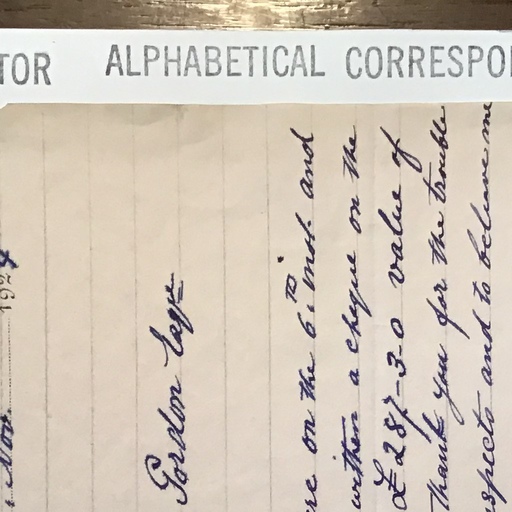 . Nov. 1924
Gordon Esqre
re on the 6.th inst. and
within a cheque on the
£287-3-0 value of
thank you for the trouble
spects and to believe me
TOR ALPHABETICAL CORRESPO